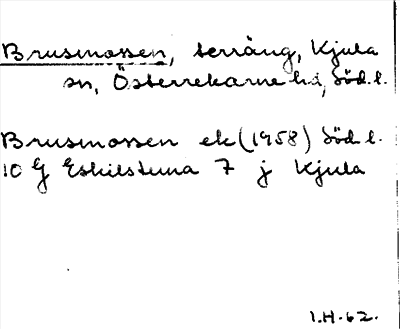 Brusmossen, terräng, Kjula
sn, Österrekarne hd, Söd. l.
Brusmossen ek (1958) Söd. l.
10 G Eskilstuna 7 j Kjula
I.H. 62.